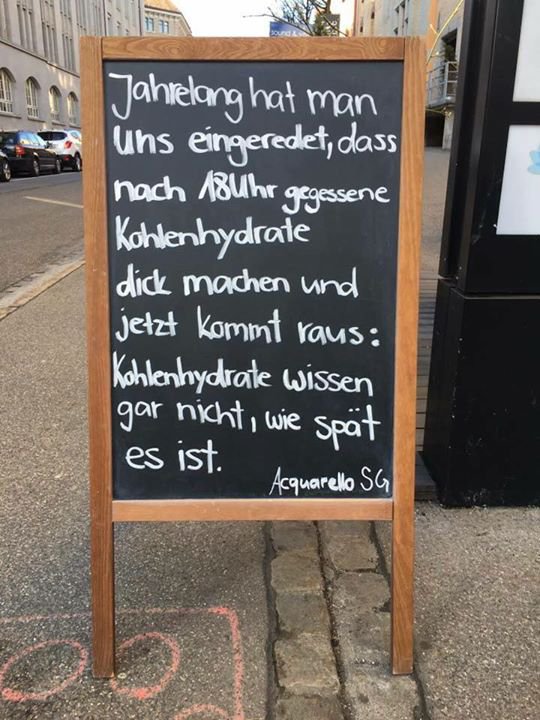 sound &
Jahrelang hat man
uns eingeredet, dass
nach 18Uhr gegessene
Kohlenhydrate
dick machen und
jetzt kommt raus:
Kohlenhydrate wissen
gar nicht, wie spät
es ist.
Acquarello SG